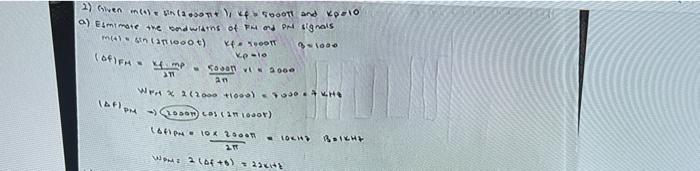 2) Given m(t) = sin(2000πt), kf = 5000π and kp = 10
a) Esmimate the bandwidths of FM and PM signals
m(t) = sin(2π1000t) kf = 5000π B = 1000
kp = 10
(Δf)FM = kf. mp / 2π = 5000π / 2π x1 =
WFM ≈ 2(2000 + 1000) =
(Δf)PM → 2000π cos(2π1000t)
(Δf)PM = 10 x 2000π / 2π = 10kHz B = 1kHz
WPM = 2(Δf + B) = 22kHz